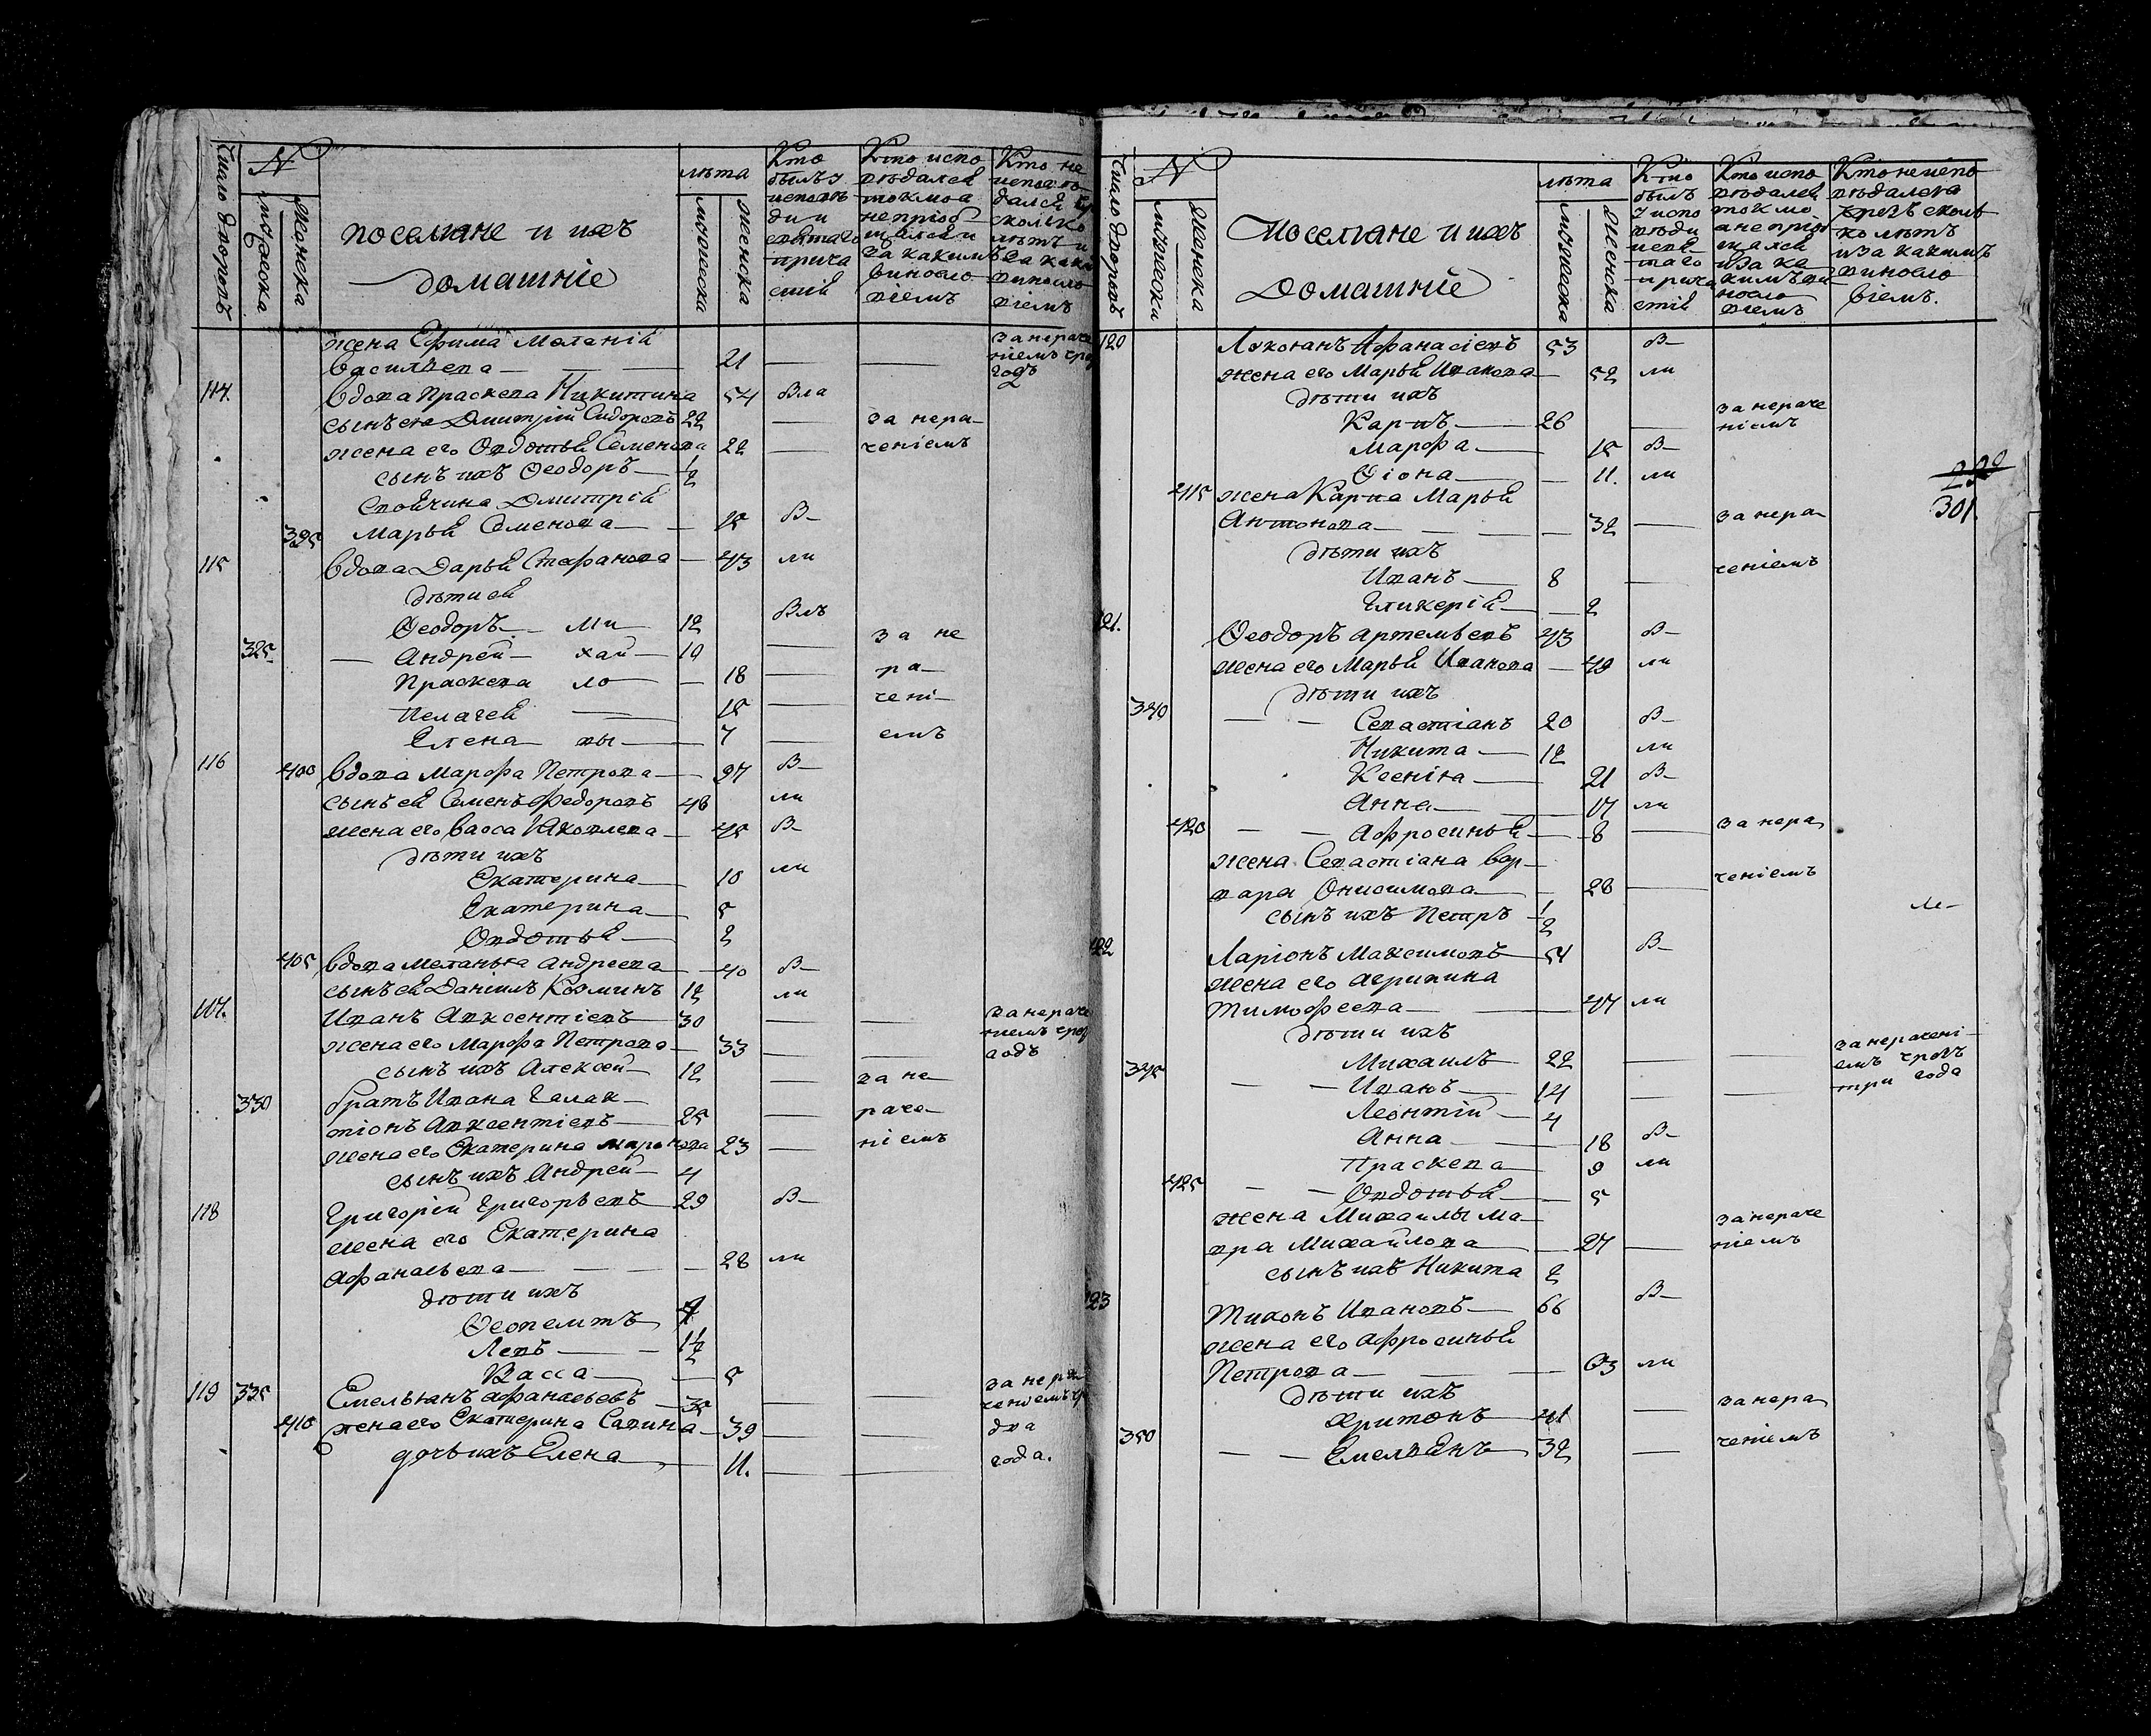 Число дворовъ
N
мужеска
женска
поселяне и ихъ
домашніе
лѣта
мужеска
женска
Кто
былъ у
исповѣ
ди и
святаго
прича
стія
Кто испо
вѣдался
токмо а
не пріоб
щался и
за какимъ
винosло
віемъ
Кто не
исповѣ
дался
сколько
лѣтъ и
за каки
винословіемъ
жена Ефима Меланія
Васильева — 21 — —
за нераче
ніемъ чрез
годъ
114. вдова Праскева Никитина 54 Вла
сынъ ея Дмитрій Сидоровъ 22 — за нера
жена его Овдотья Семенова 22 — ченіемъ
сынъ ихъ Ѳеодоръ — 1/2
своячина Дмитрія
395 Марья Семенова — 15 В
115 вдова Дарья Стефанова — 43 ли
дѣти ея
Ѳеодоръ — Ми — 12 Влъ
325. — Андрей — хай — 10 — за не
Праскева ло — 18 — ра
Пелагея — 15 — чені
Елена — вы — 7 — емъ
116 400 вдова Марфа Петрова — 97 В
сынъ ея Семенъ Федоровъ 48 ли
жена его Васса Яковлева — 45 В
дѣти ихъ
Екатерина — 10 ли
Екатерина — 5
Овдотья — 2
405 вдова Меланья Андреева — 40 В
сынъ ея Даніилъ Козминъ 12 ли
117. Иванъ Авксентіевъ 30 — — за нераче
жена его Марфа Петрова — 33 — — ніемъ чрез
сынъ ихъ Алексей — 12 — за не годъ
330 братъ Ивана Галак
тіонъ Авксентіевъ — 25 — раче
жена его Екатерина Миронова 23 — ніемъ
сынъ ихъ Андрей — 4
118 Григорій Григорьевъ 29 В
жена его Екатерина
Афанасьева — 28 ли
дѣти ихъ
Ѳеопемтъ 4
Левъ — 1 1/2
Васса — 5
119 335 Емельянъ Афанасьевъ — 35 — — за нера
410 жена его Екатерина Савина — 39 — — ченіемъ
два
дочь ихъ Елена — 11. — — года.
Число дворовъ
N
мужески
женска
Поселяне и ихъ
Домашніе
лѣта
мужеска
женска
Кто
былъ
у испо
вѣди
и свя
таго
прича
стія
Кто испо
вѣдался
токмо
а не пріоб
щался
и за ка
кимъ ви
носло
віемъ
Кто не испо
вѣдался
чрезъ сколь
ко лѣтъ
и за какимъ
винosло
віемъ.
120 Лукоянъ Афанасіевъ 53 В
жена его Марья Иванова — 52 ли
дѣти ихъ
Карпъ — 26 — за нераче
ніемъ
Марфа — 15 В
Ѳіона — 11. ли
292
415 жена Карпа Марья
301.
Антонова — 32 — за нера
дѣти ихъ
Иванъ — 8 — ченіемъ
Гликерія — 2
121. Ѳеодоръ Артемьевъ 43 В
жена его Марья Иванова — 40 ли
дѣти ихъ
340 — — Севастіанъ 20 В
Никита — 12 ли
Ксенія — 21 В
Анна — 17 ли
420 — — Афросинья — 8 — за нера
жена Севастіана Вар
вара Онисимова — 28 — ченіемъ
сынъ ихъ Петръ 1/2
122 Ларіонъ Максимовъ 54 В
жена его Агрипина
Тимофеева — 47 ли
дѣти ихъ
Михаилъ 22 — — за нерачені
345 — — Иванъ 14 — — емъ чрезъ
Леонтій — 4 три года
Анна — 18 В
Праскева — 9 ли
425 — — Овдотья — 5
жена Михаилы Ма
вра Михайлова — 27 — за нераче
ніемъ
сынъ ихъ Никита 2
123 Тихонъ Ивановъ — 66 В
жена его Афросинья
Петрова — 63 ли
дѣти ихъ
Харитонъ — 41 — за нера
350 — — Емельянъ 32 — ченіемъ